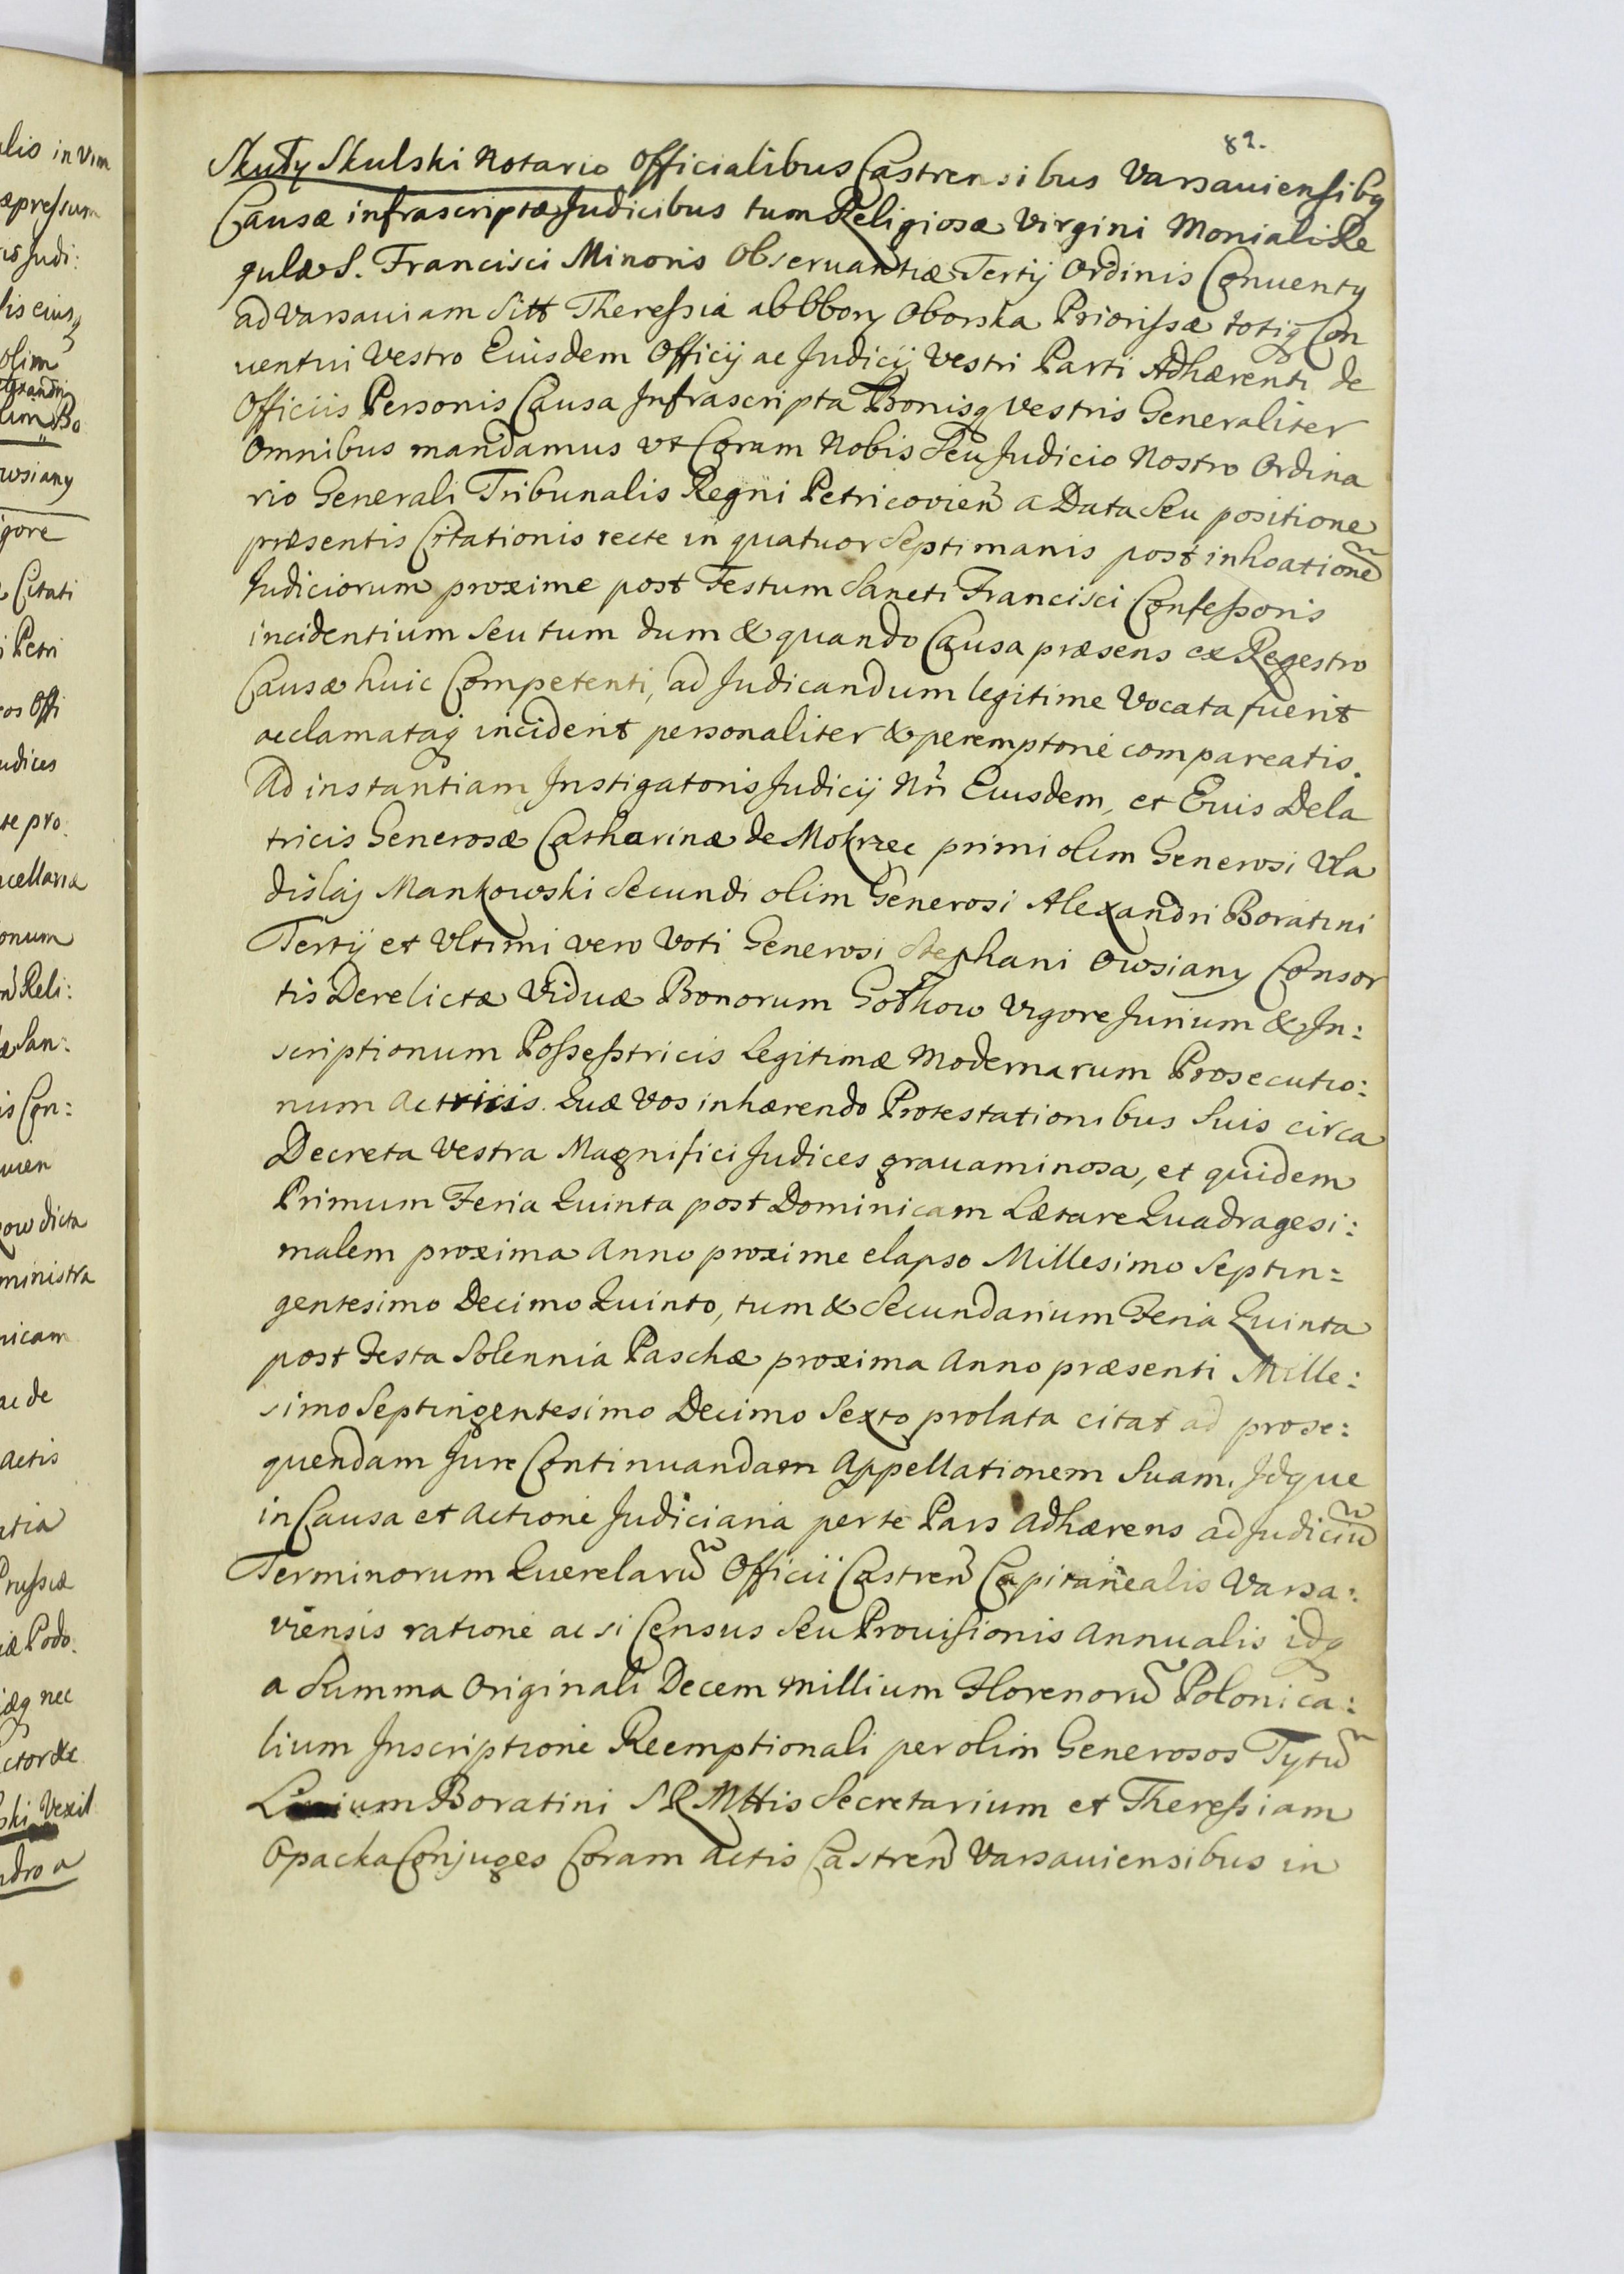 82.
Skuły Skulski Notario Officialibus Castrensibus Varsauiensibq
Causæ infrascriptæ Judicibus tum Religiosæ Virgini Moniali Re
gulæ S. Francisci Minoris Obseruantiæ Tertij Ordinis Conuentq
ad Varsauiam Sitt Theressia ab Obory Oborska Priorissæ totiq Con
uentui Vestro Eiusdem Officij ac Judicij Vestri Parti Adhærenti de
Officiis Personis Causa Infrascripta Bonisq Vestris Generaliter
Omnibus mandamus vt Coram Nobis Seu Judicio Nostro Ordina
rio Generali Tribunalis Regni Petricovien a Data Seu positione
præsentis Citationis recte in quatuor Septimanis post inhoatione
Judiciorum proxime post Festum Sancti Francisci Confessoris
incidentium seu tum dum & quando Causa præsens ex Regestro
Causæ huic Competenti, ad Judicandum legitime Vocata fuerit
acclamataq inciderit personaliter & peremptorie compareatis.
Ad instantiam Instigatoris Judicij Nri Eiusdem, et Eius Dela
tricis Generosæ Catharinæ de Mokrzec primi olim Generosi Vla
dislaj Mankowski Secundi olim Generosi Alexandri Boratini
Tertij et Vltimi vero Voti Generosi Stephani Owsiany Consor
tis Derelictæ Viduæ Bonorum Gothow Vigore Jurium & In:
scriptionum Possesstricis Legitimæ Modernarum Prosecutio:
num Actricis. Quæ Vos inhærendo Protestationibus Suis circa
Decreta Vestra Magnifici Judices grauaminosa, et quidem
Primum Feria Quinta post Dominicam Lætare Quadragesi:
malem proxima Anno proxime elapso Millesimo Septin=
gentesimo Decimo Quinto, tum & Secundarium Feria Quinta
post Festa Solennia Paschæ proxima Anno præsenti Mille:
simo Septingentesimo Decimo Sexto prolata citat ad prose:
quendam Jure Continuandam Appellationem Suam. Idque
in Causa et Actione Judiciaria per te Pars Adhærens ad Judiciu
Terminorum Querelaru Officii Castren Capitanealis Varsa:
viensis ratione ac si Census Seu Prouisionis Annualis idq
a Summa Originali Decem millium Florenoru Polonica:
lium Inscriptione Reemptionali per olim Generosos Tytu
Liuium Boratini S R Mttis Secretarium et Theressiam
Opacka Conjuges Coram Actis Castren Varsauiensibus in